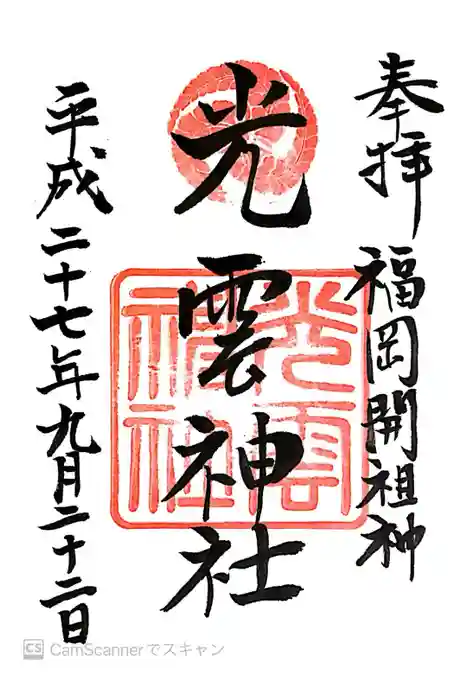 奉拝 福岡開祖神
光雲神社
光雲神社
平成二十七年九月二十二日
CS CamScannerでスキャン